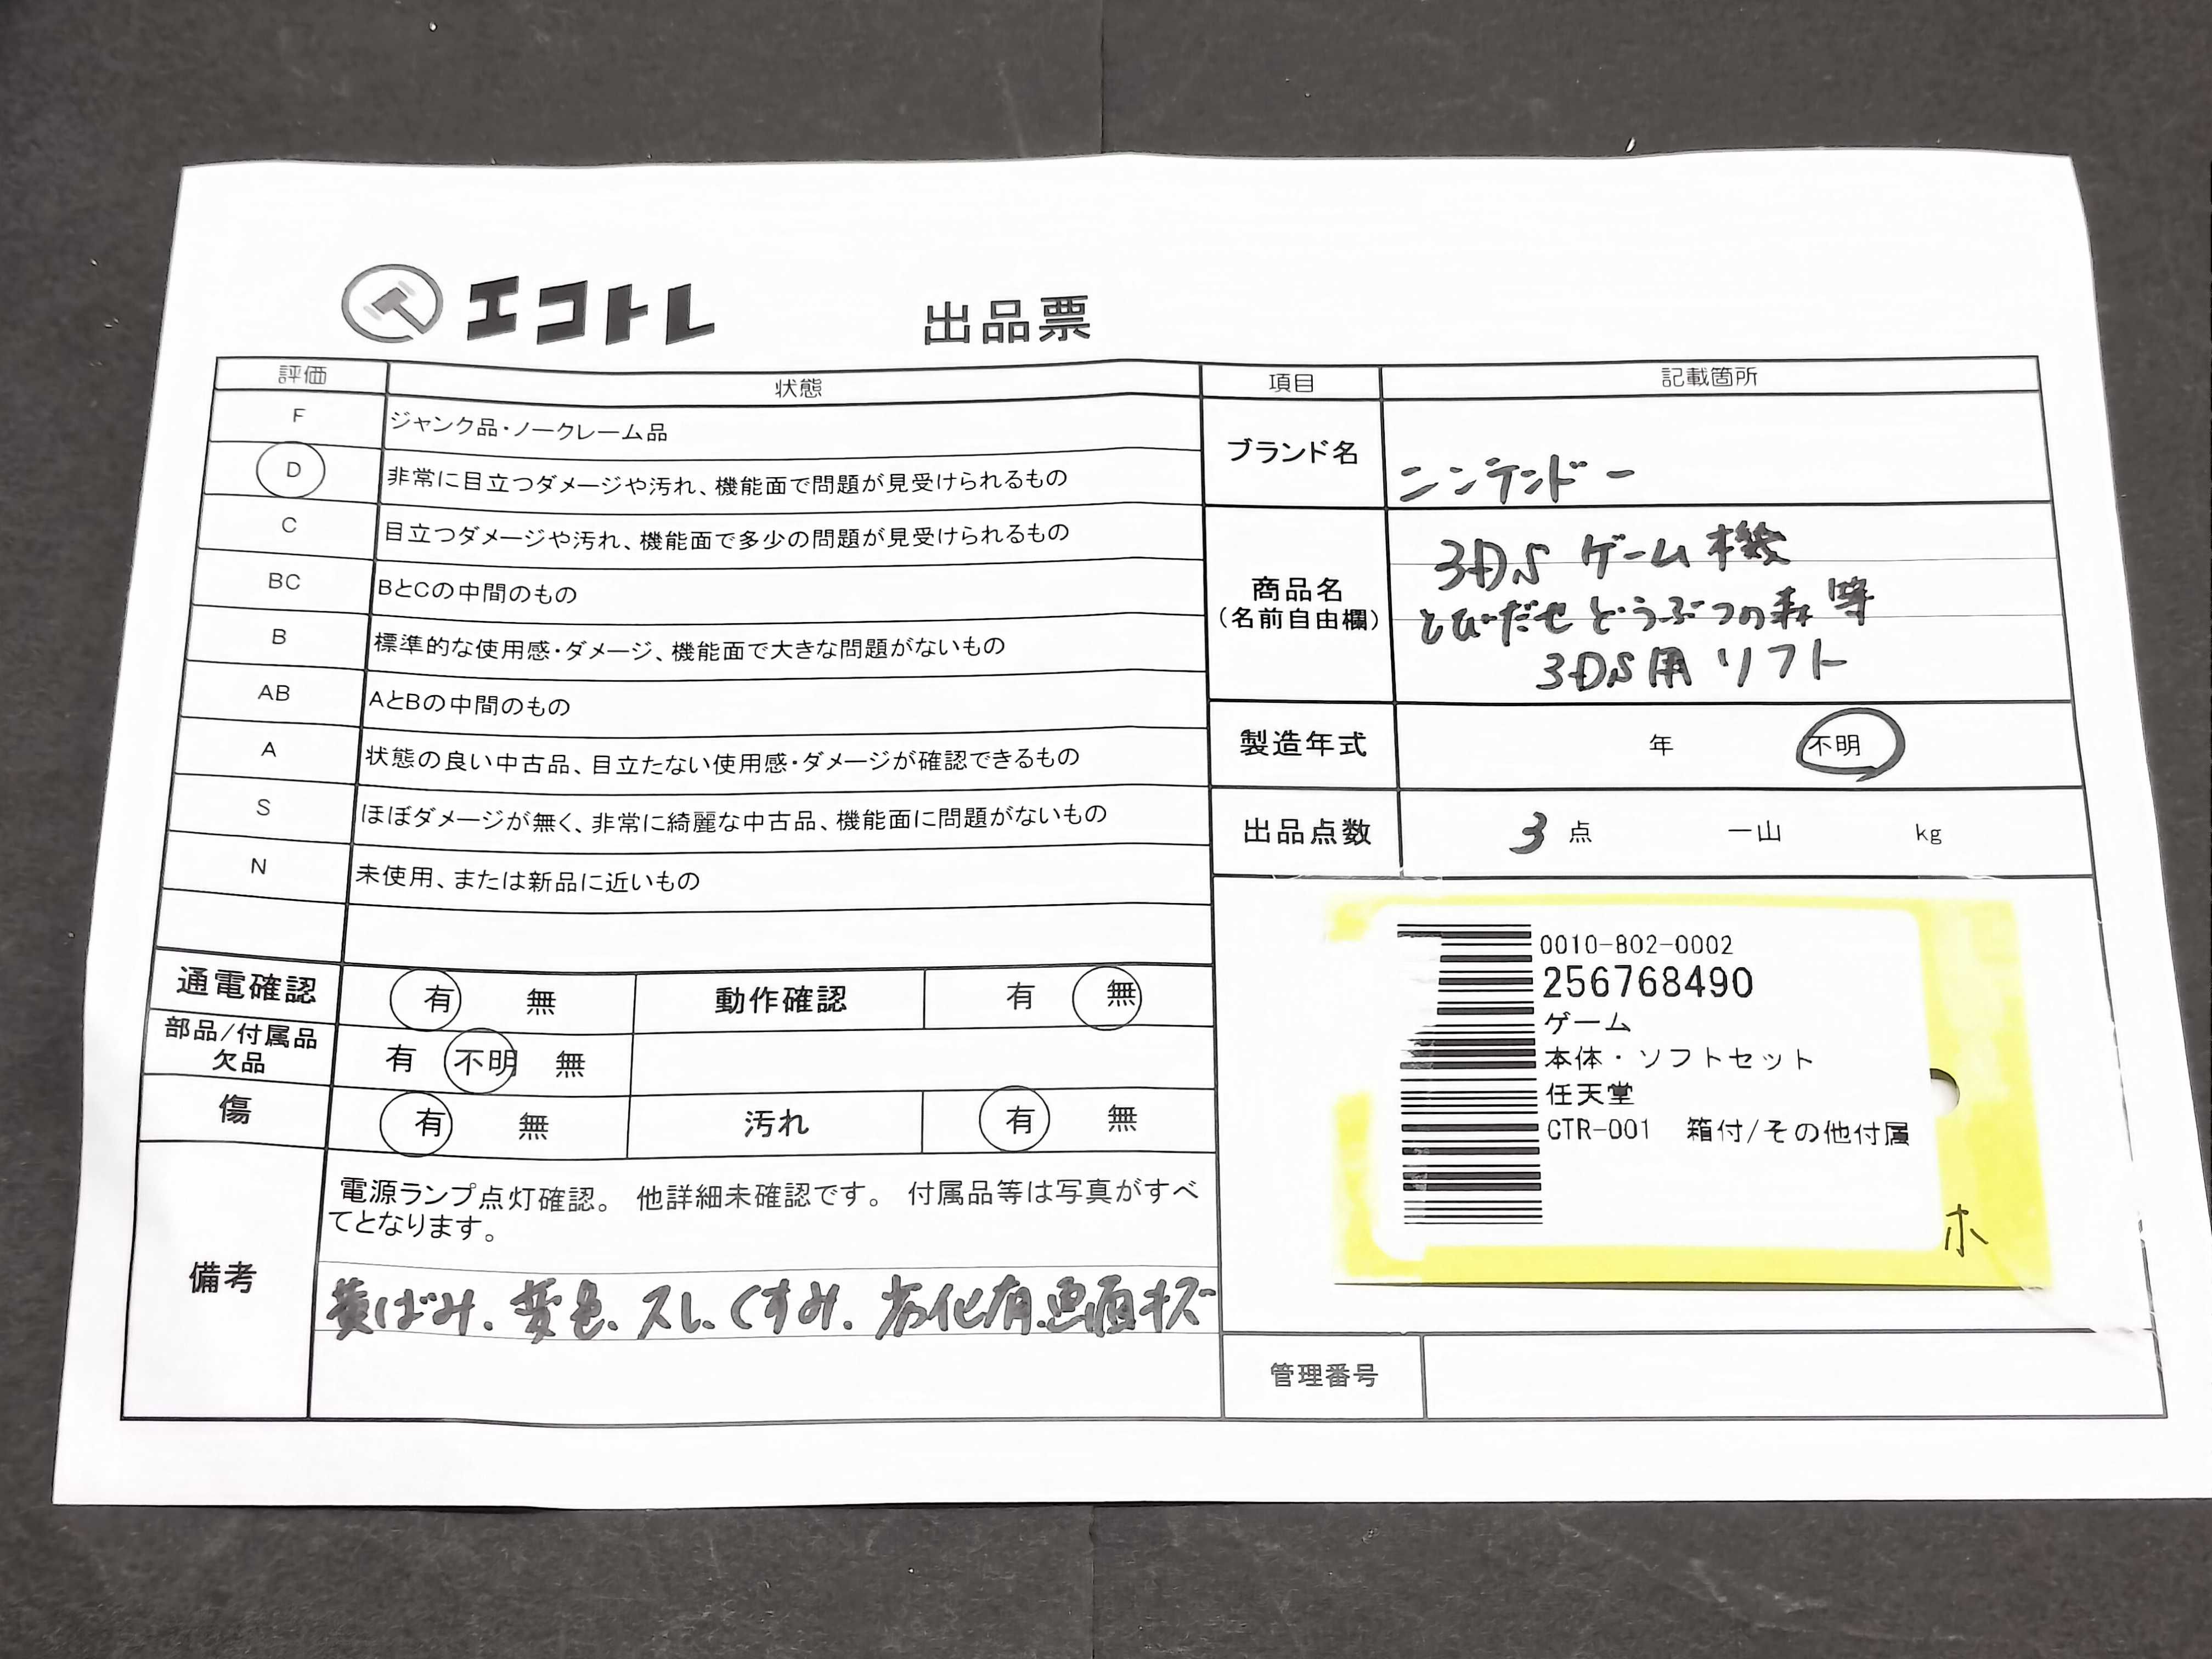 エコトレ 出品票
評価 状態
F ジャンク品・ノークレーム品
D 非常に目立つダメージや汚れ、機能面で問題が見受けられるもの
C 目立つダメージや汚れ、機能面で多少の問題が見受けられるもの
BC BとCの中間のもの
B 標準的な使用感・ダメージ、機能面で大きな問題がないもの
AB AとBの中間のもの
A 状態の良い中古品、目立たない使用感・ダメージが確認できるもの
S ほぼダメージが無く、非常に綺麗な中古品、機能面に問題がないもの
N 未使用、または新品に近いもの
通電確認 有 無 動作確認 有 無
部品/付属品
欠品 有 不明 無
傷 有 無 汚れ 有 無
備考
電源ランプ点灯確認。 他詳細未確認です。 付属品等は写真がすべ
てとなります。
黄ばみ、変色、スレ、くすみ、劣化有、画面キズ
項目 記載箇所
ブランド名 ニンテンドー
商品名
(名前自由欄)
3DS ゲーム機
とびだせどうぶつの森 等
3DS用 ソフト
製造年式 年 不明
出品点数 3 点 一山 kg
0010-802-0002
256768490
ゲーム
本体・ソフトセット
任天堂
CTR-001 箱付/その他付属
ホ
管理番号